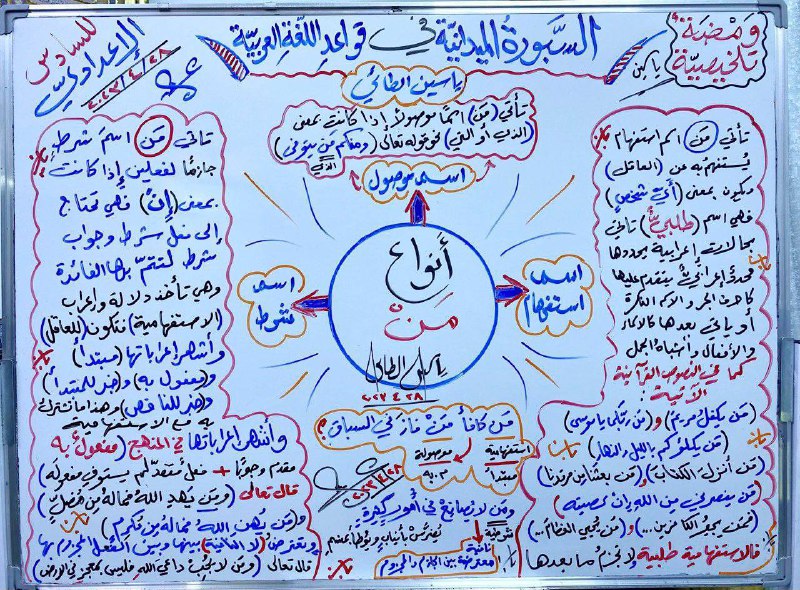 السبورة الميدانية في قواعد اللغة العربية
ومضة
تلخيصية
ياسين
للسادس
الإعدادي
٢٠٢٣/٤/٢٨
ياسين الطائي
تأتي (مَن) اسمًا موصولًا إذا كانت بمعنى
(الذي أو التي) نحو قوله تعالى (ومنكم من يتوفى)
الذي
اسم موصول
أنواع
مَنْ
٢٠٢٣.٤.٢٨
اسم
استفهام
اسم
شرط
تأتي مَن اسم استفهام
يُستفهم به عن (العاقل)
ويكون بمعنى (أيّ شخصٍ)
فهي اسم (طلبيّ) تأتي
بحالات إعرابية يحددها
محددٌ إعرابيٌّ يتقدم عليها
كأحرف الجر والاسم النكرة
أو يأتي بعدها كالأسماء
والأفعال وأشباه الجمل
كما في النصوص القرآنية
الآتية:
(مَن يكفل مريم) و(مَن ربكما يا موسى)
(مَن يكلؤكم بالليل والنهار)
(مَن أنزل الكتاب) و(مَن بعثنا من مرقدنا)
(فمَن ينصرني من الله إن عصيته)
(فمَن يجير الكافرين...) و(مَن يحيي العظام...)
فالاستفهامية طلبية ولا تجزم ما بعدها
تأتي مَن اسم شرط
جازمًا لفعلين إذا كانت
بمعنى (إنْ) فهي تحتاج
إلى فعل شرط وجواب
شرط لتتمّ بها الفائدة
وهي تأخذ دلالة وإعراب
(الاستفهامية) فتكون (للعاقل)
وأشهر إعراباتها (مبتدأ)
و(مفعول به) و(خبر للمبتدأ)
و(خبر للناقص) وهذا ما تشترك
به مع الاستفهامية
وأشهر إعراباتها في المنهج (مفعول به
مقدم وجوبًا + فعل متعدٍّ لم يستوفِ مفعوله)
قال تعالى (ومَن يهدِ اللهُ فما له من مُضلٍّ)
و(مَن يُهن اللهُ فما له من مُكرم)
و تعترض (لا النافية) بينها وبين الفعل المجزوم بها
قال تعالى (ومَن لا يُجب داعيَ اللهِ فليس بمعجزٍ في الأرض)
مَن كافأ مَنْ فاز في السباق؟
استفهامية
موصولة
مبتدأ
م.به
٢٠٢٣/٤/٢٨
ومَن لا يصانعْ في أمورٍ كثيرةٍ
يُضرّسْ بأنيابٍ ويُوطأ بمنسم
شرطية
نافية
معترضة بين الجازم والمجزوم